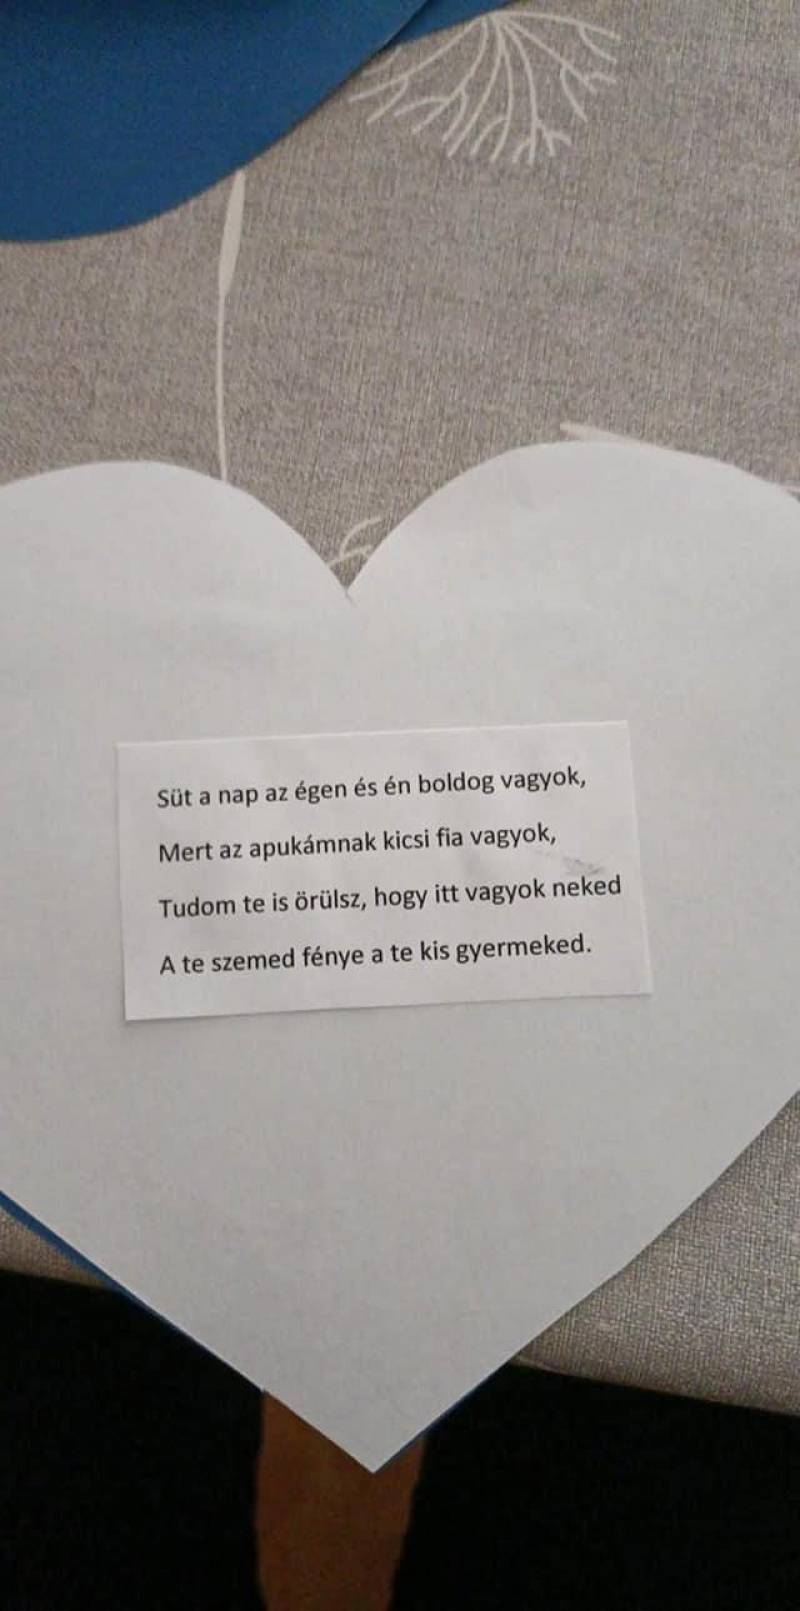 Süt a nap az égen és én boldog vagyok,
Mert az apukámnak kicsi fia vagyok,
Tudom te is örülsz, hogy itt vagyok neked
A te szemed fénye a te kis gyermeked.